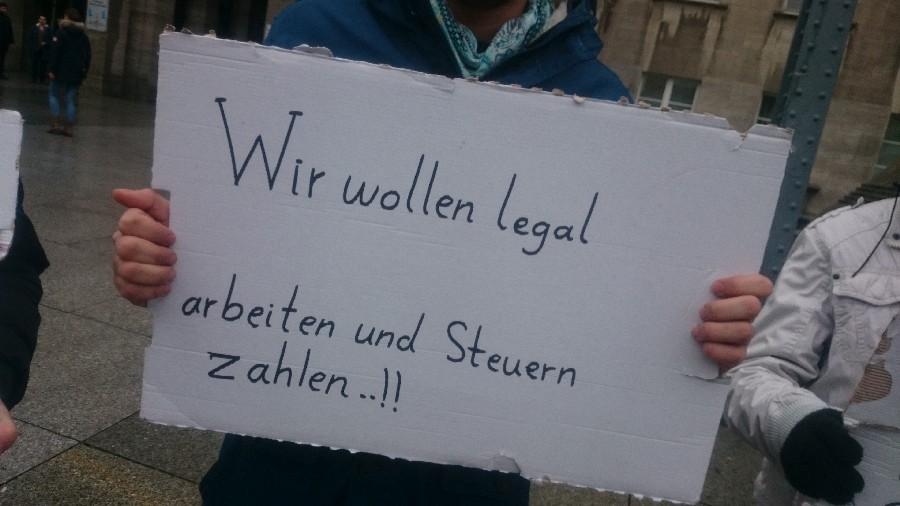 Wir wollen legal
arbeiten und Steuern
Zahlen..!!